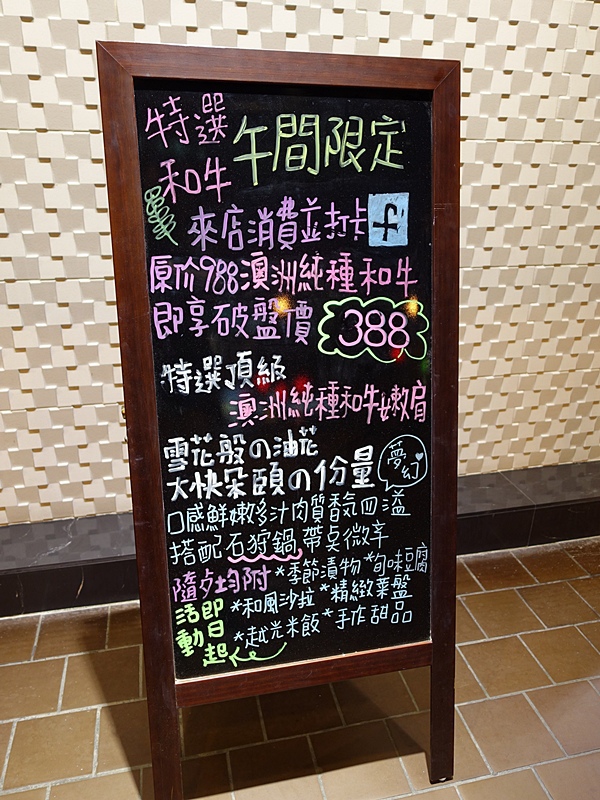 特選
和牛
午間限定
來店消費並打卡
原价988澳洲純種和牛
即享破盤價 388
特選頂級
澳洲純種和牛嫩肩
雪花般の油花
大快朵頤の份量
夢幻
口感鮮嫩多汁肉質香氣四溢
搭配石狩鍋帶点微辛
隨歺均附 *季節漬物 *旬味豆腐
*和風沙拉 *精緻菜盤
*越光米飯 *手作甜品
活動
即日起